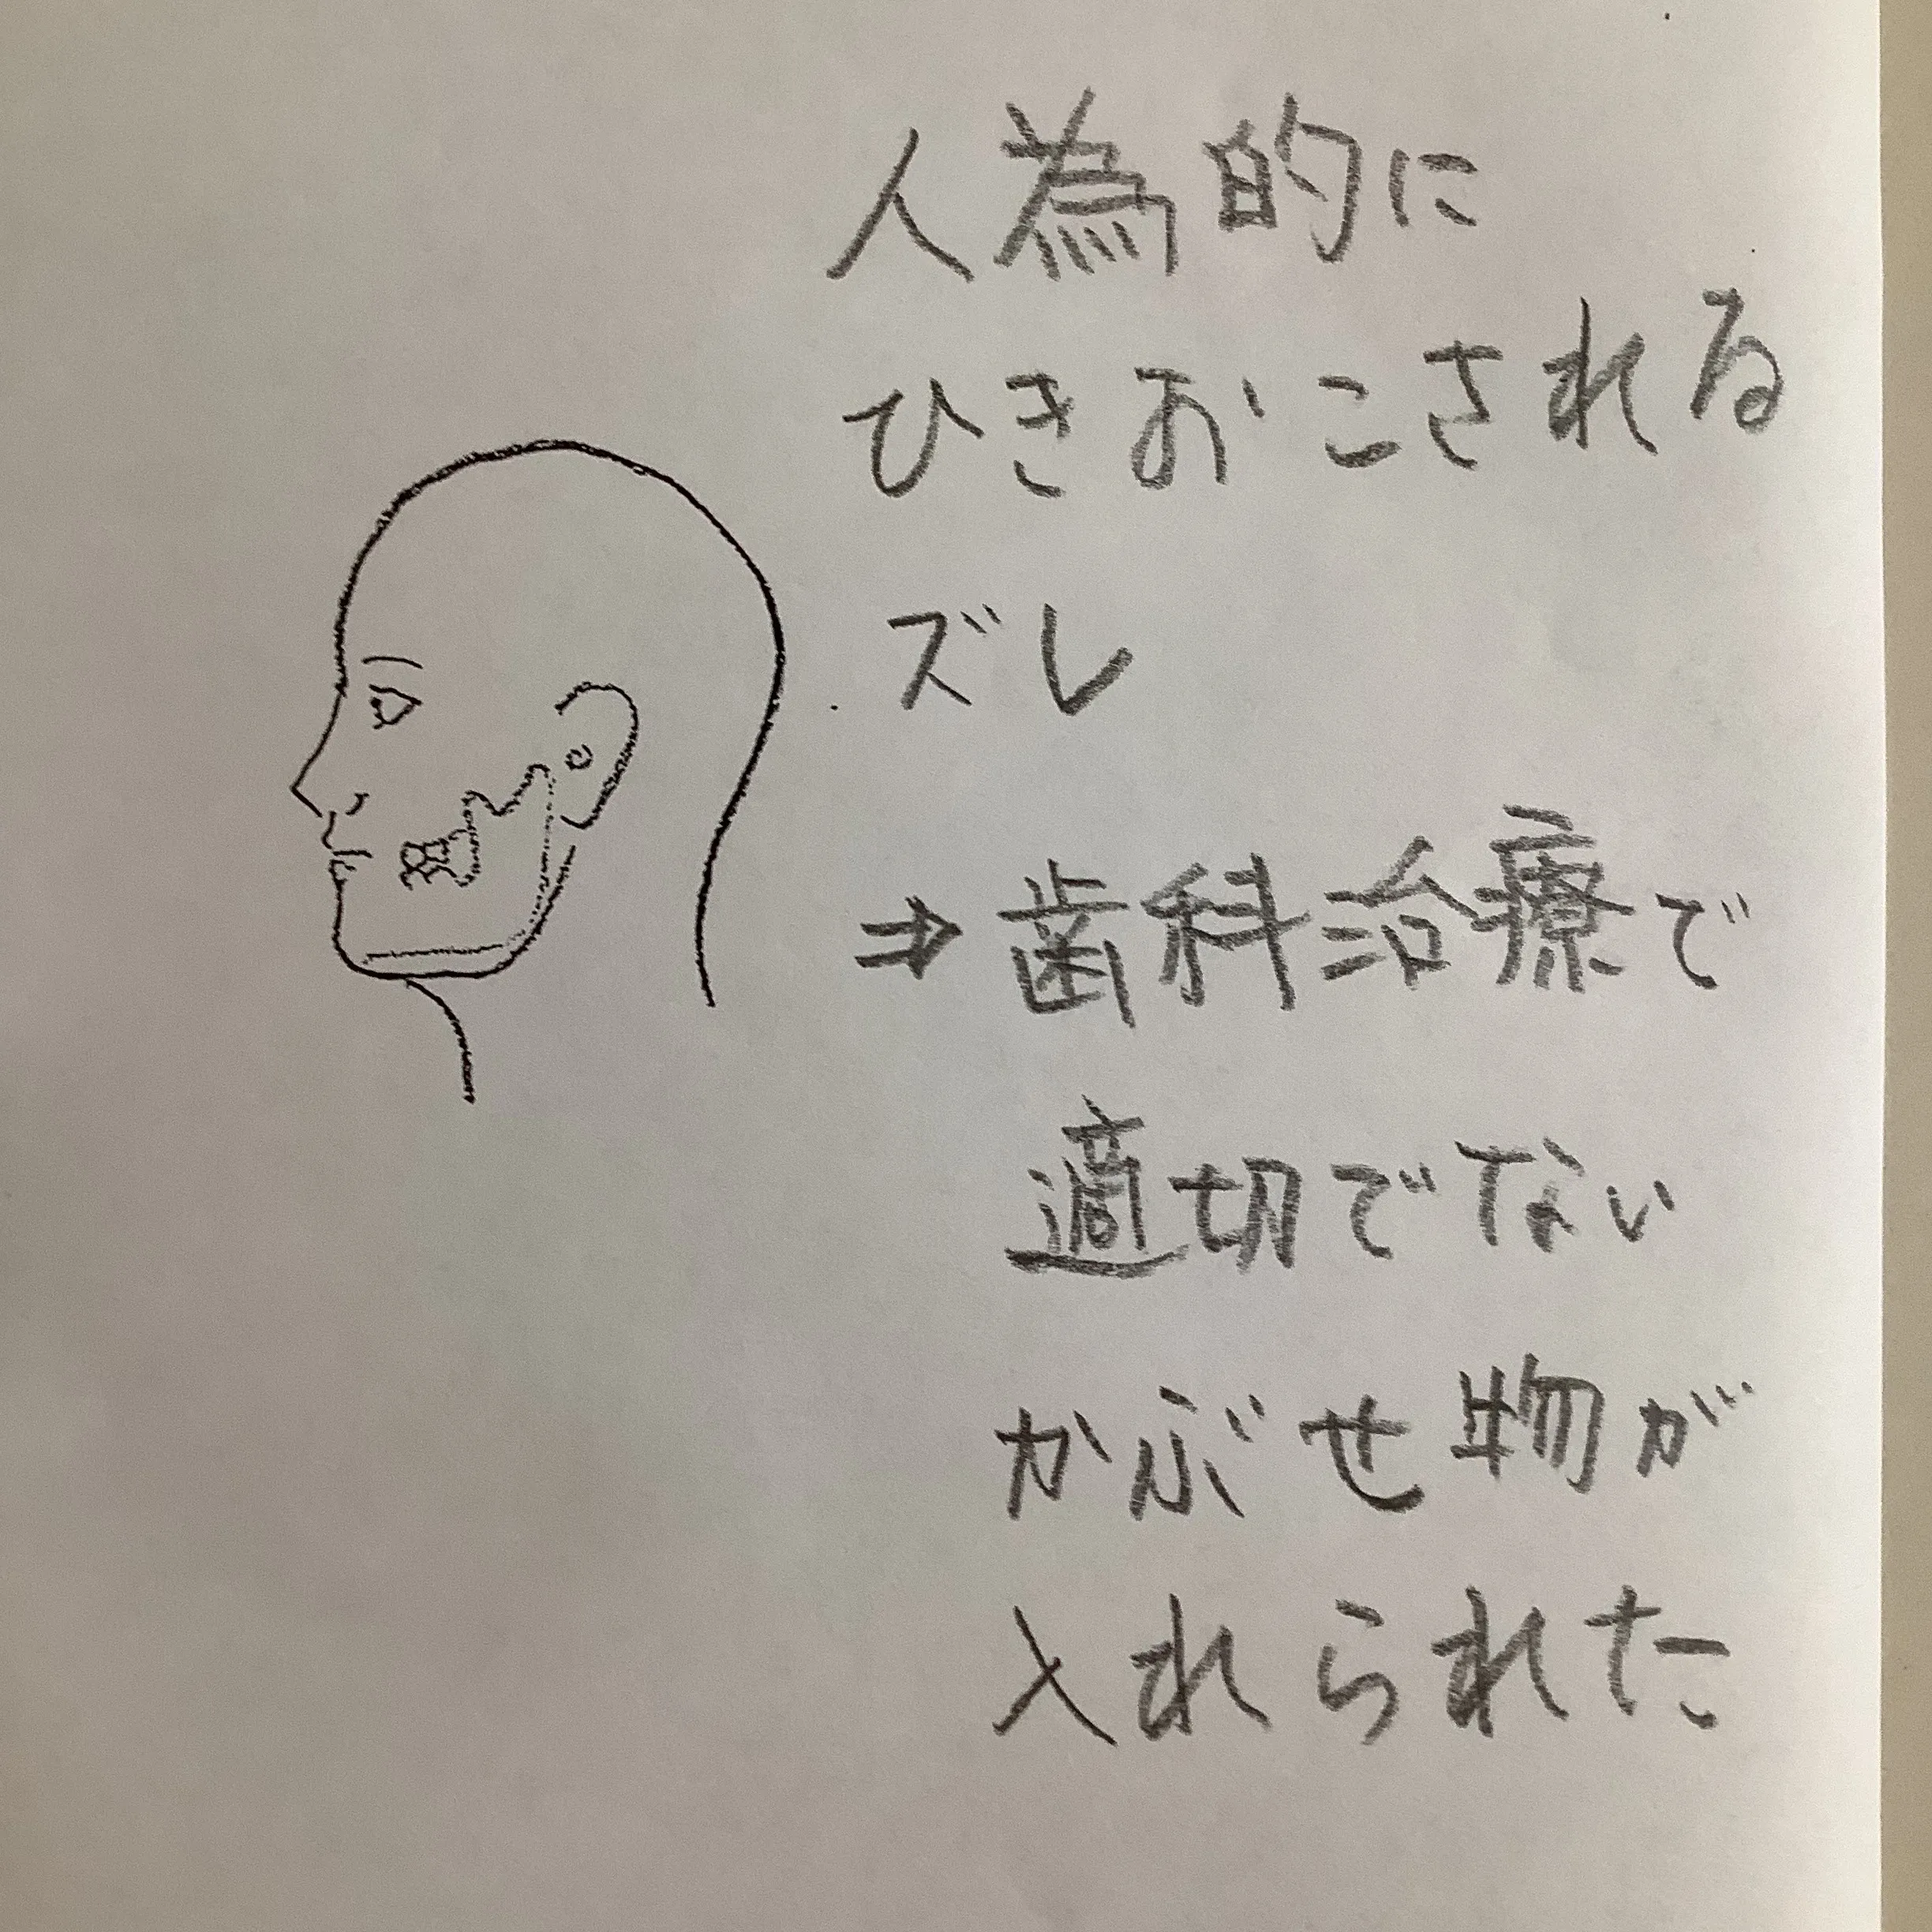 人為的に
ひきおこされる
ズレ
⇒歯科治療で
適切でない
かぶせ物が
入れられた